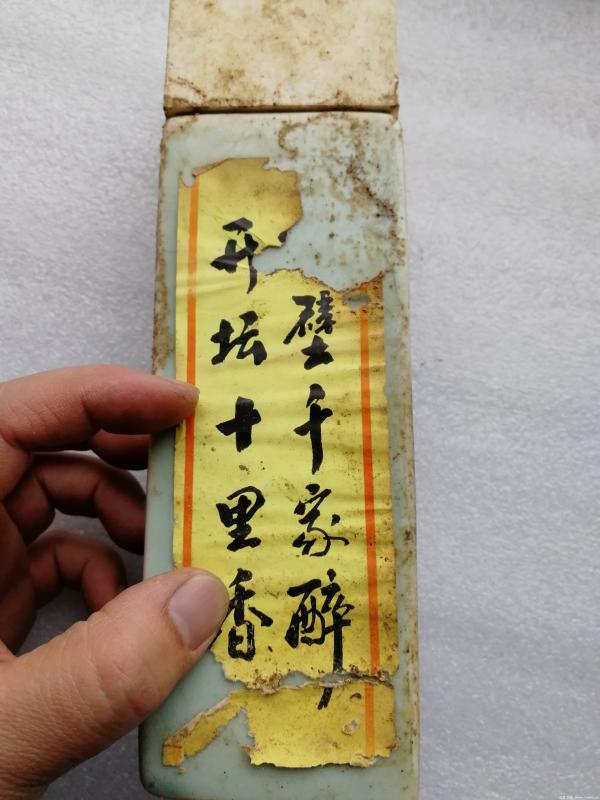 壁千家醉
开坛十里香